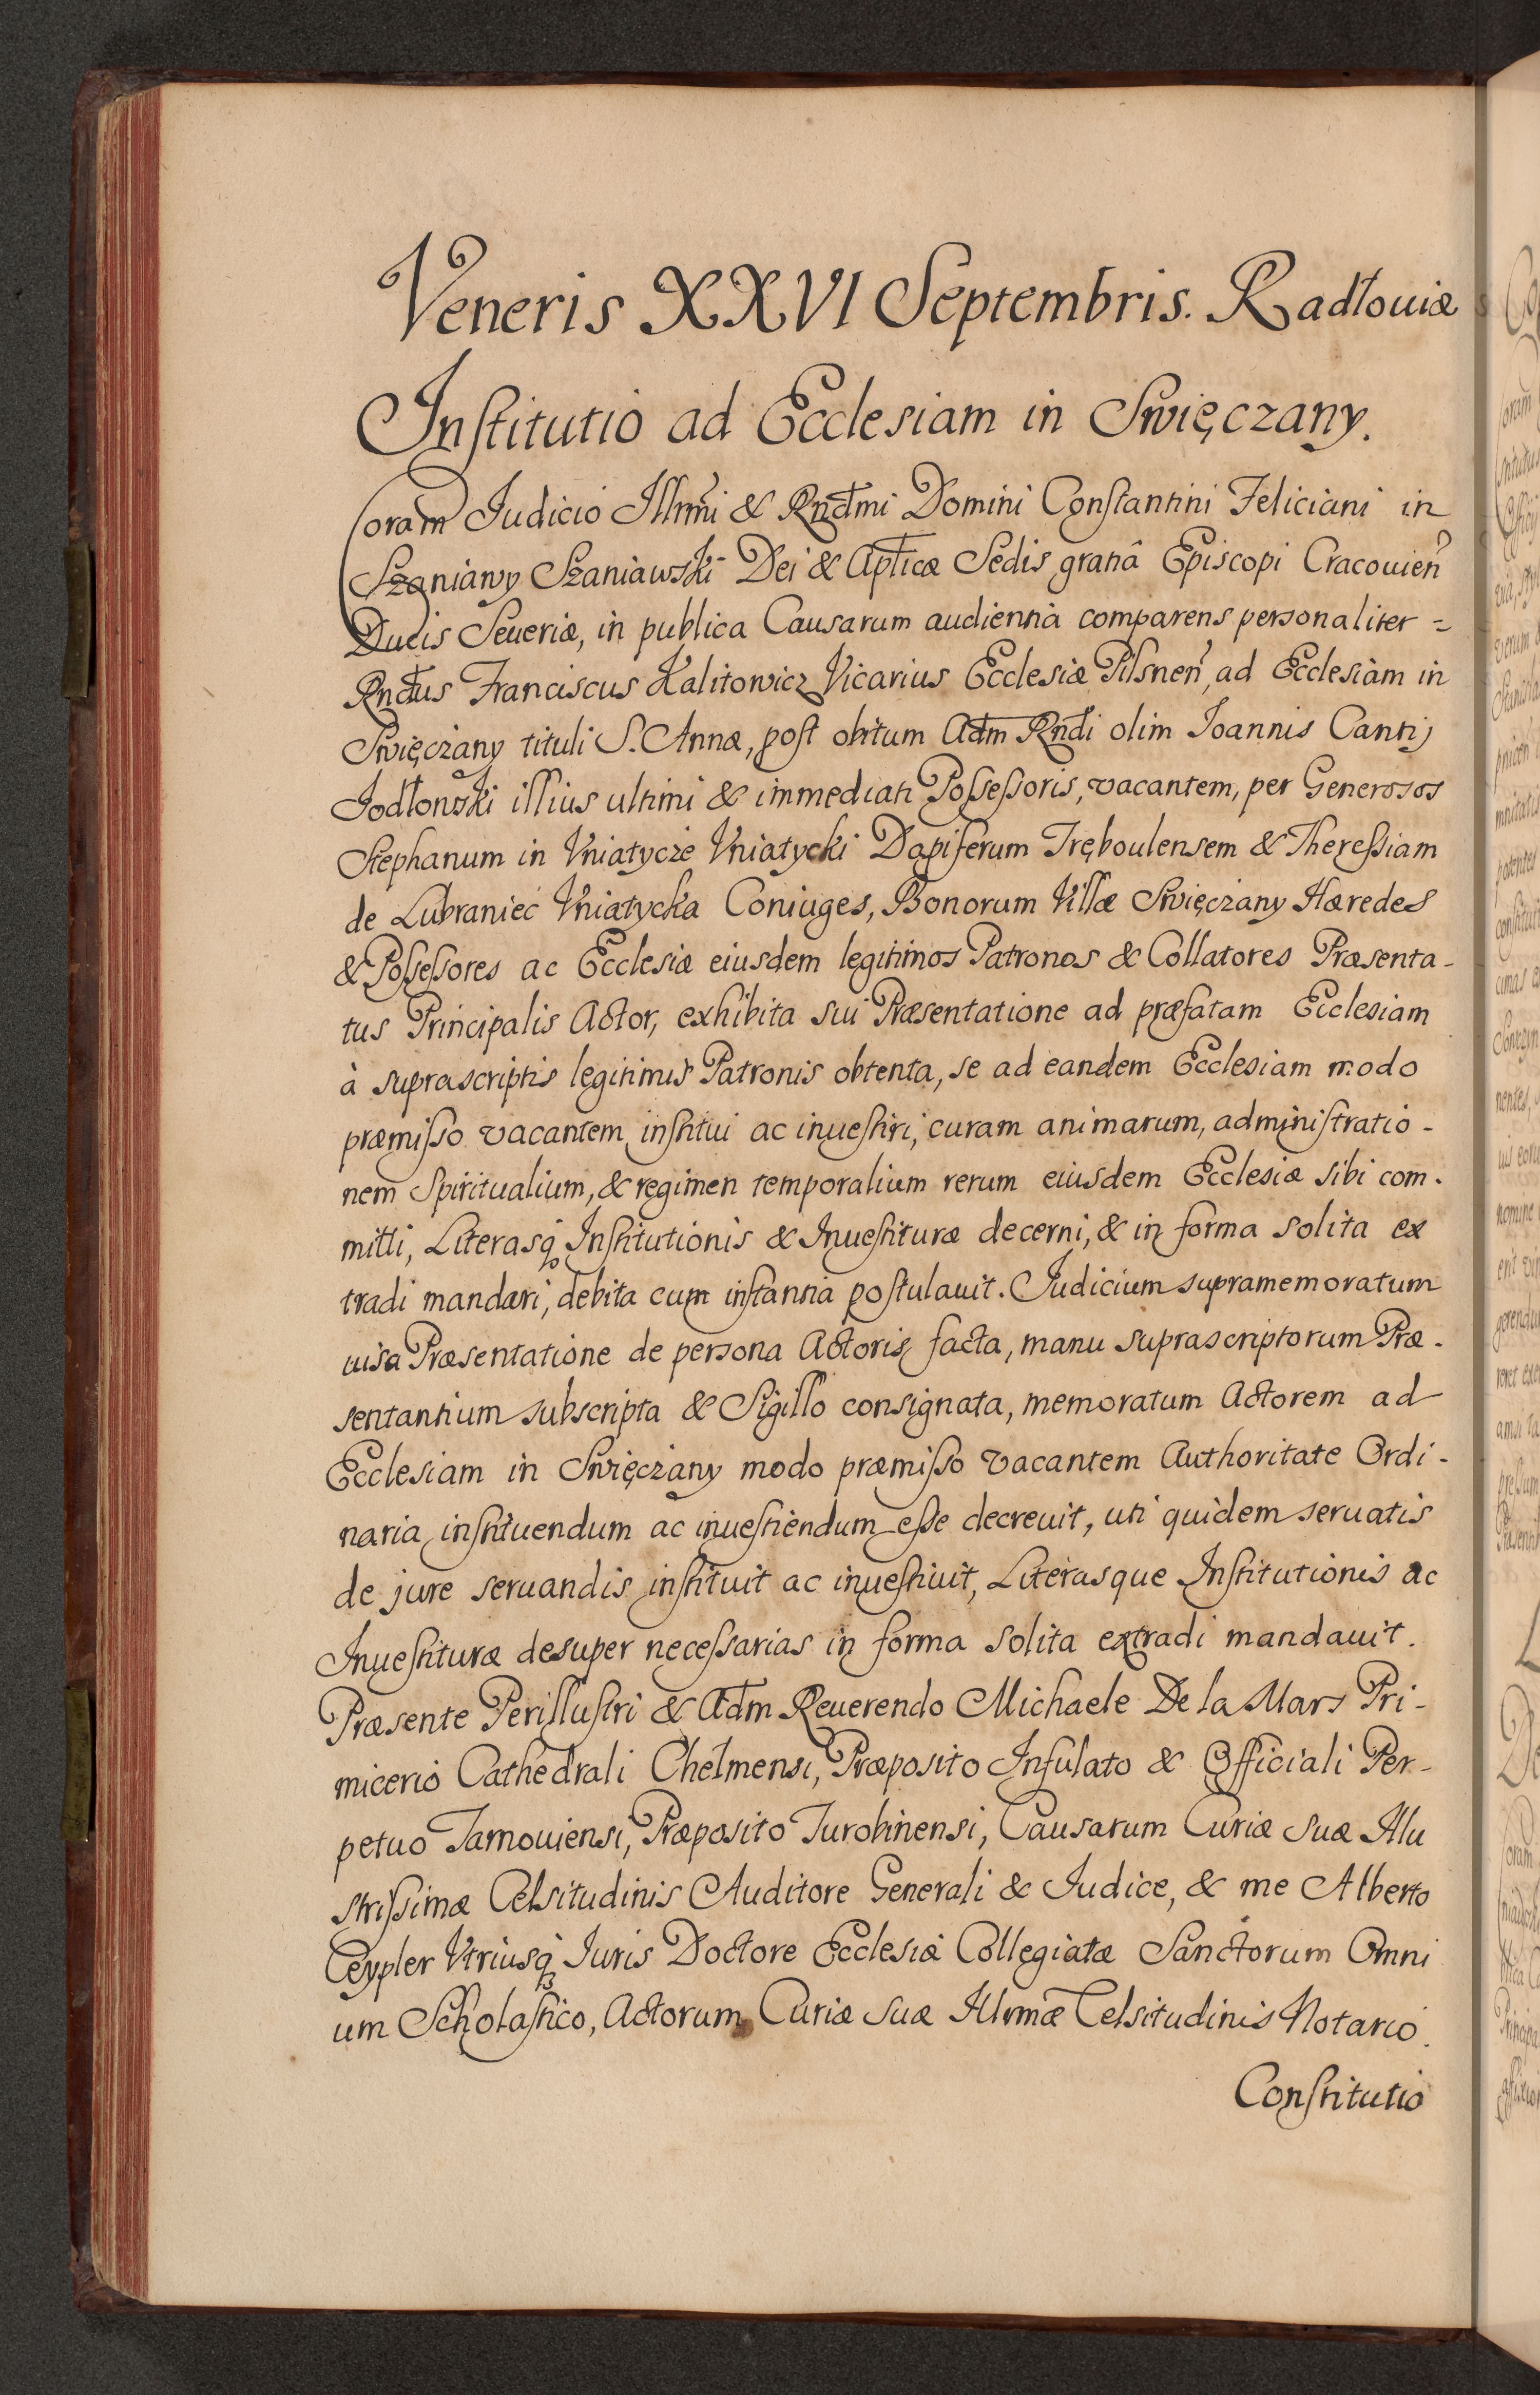 Veneris XXVI Septembris. Radłouiæ
Institutio ad Ecclesiam in Swięczany.
Coram Iudicio Illrmi & Rndmi Domini Constantini Feliciani in
Szaniawy Szaniawski Dei & Aplicæ Sedis gratiâ Episcopi Cracouien
Ducis Seueriæ, in publica Causarum audientia comparens personaliter =
Rndus Franciscus Kalitowicz Vicarius Ecclesiæ Pilsnen, ad Ecclesiam in
Swięczany tituli S. Annæ, post obitum Adm Rndi olim Ioannis Cantij
Jodłowski illius ultimi & immediati Possessoris, vacantem, per Generosos
Stephanum in Vniatycze Vniatycki Dapiferum Tręboulensem & Theressiam
de Lubraniec Vniatycka Coniuges, Bonorum Villæ Swięczany Hæredes
& Possessores ac Ecclesiæ eiusdem legitimos Patronos & Collatores Præsenta-
tus Principalis Actor, exhibita sui Præsentatione ad præfatam Ecclesiam
à suprascriptis legitimis Patronis obtenta, se ad eandem Ecclesiam modo
præmisso vacantem institui ac inuestiri, curam animarum, administratio-
nem Spiritualium, & regimen temporalium rerum eiusdem Ecclesiæ sibi com-
mitti, Literasq Institutionis & Inuestituræ decerni, & in forma solita ex
tradi mandari, debita cum instantia postulauit. Iudicium supramemoratum
uisa Præsentatione de persona Actoris facta, manu suprascriptorum Præ-
sentantium subscripta & Sigillo consignata, memoratum Actorem ad
Ecclesiam in Swięczany modo præmisso vacantem Authoritate Ordi-
naria instituendum ac inuestiendum esse decreuit, uti quidem seruatis
de jure seruandis instituit ac inuestiuit, Literasque Institutionis ac
Inuestituræ desuper necessarias in forma solita extradi mandauit.
Præsente Perillustri & Adm Reuerendo Michaele De la Mars Pri-
micerio Cathedrali Chelmensi, Præposito Infulato & Officiali Per-
petuo Tarnouiensi, Præposito Turobinensi, Causarum Curiæ suæ Illu
strissimæ Celsitudinis Auditore Generali & Iudice, & me Alberto
Ceypler Vtriusq Iuris Doctore Ecclesiæ Collegiatæ Sanctorum Omni
um Scholastico, Actorum Curiæ suæ Illrmæ Celsitudinis Notario.
Constitutio